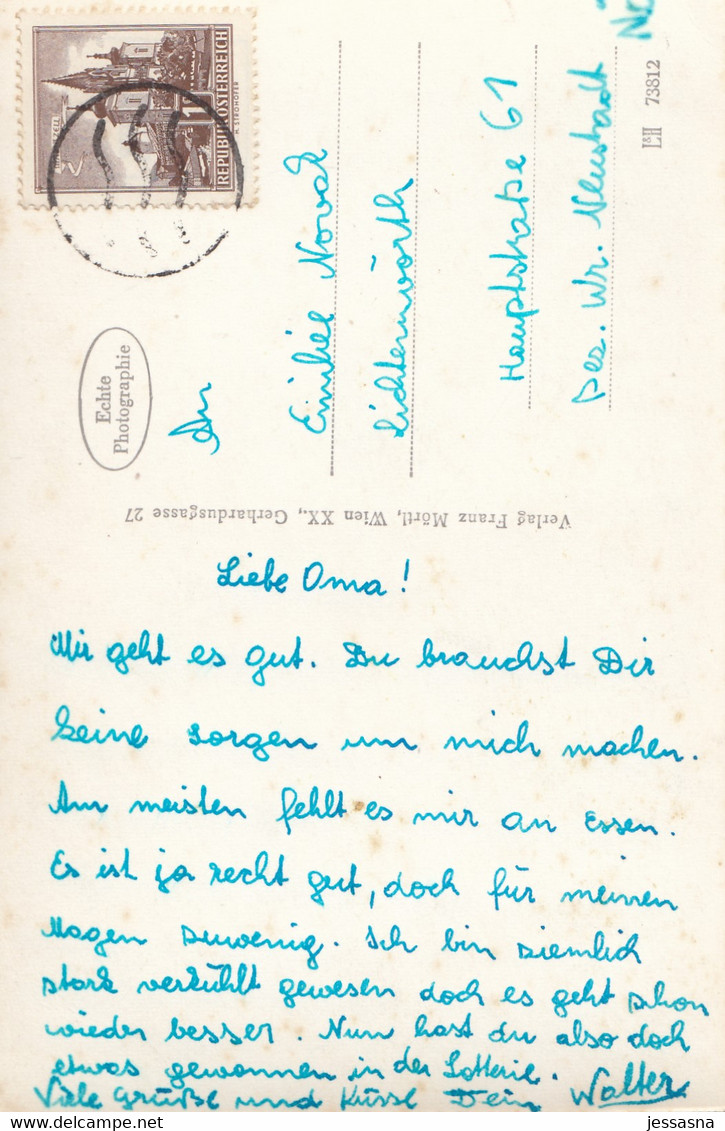 REPUBLIK ÖSTERREICH
Echte
Photographie
An
Emilie Novak
Lichtenwörth
Hauptstraße 61
Bez. Wr. Neustadt
L&H 73812
Verlag Franz Mörtl, Wien XX., Gerhardusgasse 27
Liebe Oma!
Mir geht es gut. Du brauchst Dir
keine sorgen um mich machen.
Am meisten fehlt es mir an Essen.
Es ist ja recht gut, doch für meinen
Magen zuwenig. Ich bin ziemlich
stark verkühlt gewesen doch es geht schon
wieder besser. Nun hast du also doch
etwas gewonnen in der Lotterie.
Viele Grüße und Küsse Dein Walter
jessasna